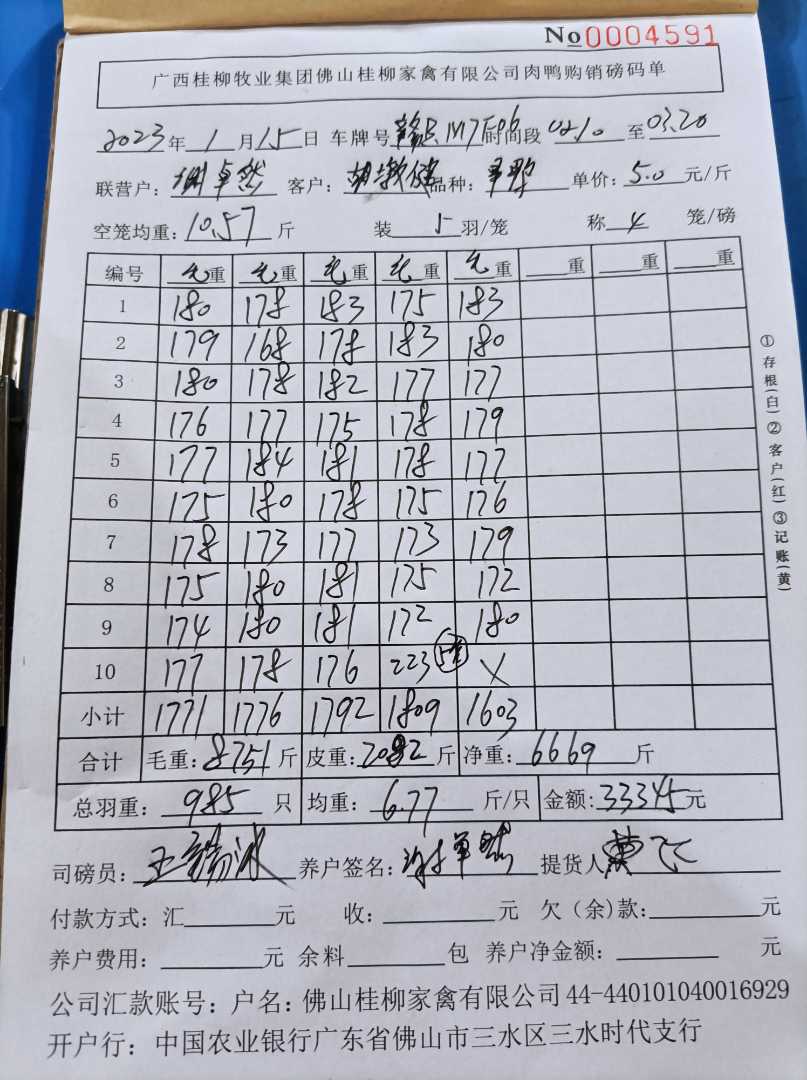 No 0004591
广西桂柳牧业集团佛山桂柳家禽有限公司肉鸭购销磅码单
2023年1月15日 车牌号 时间段 02.10 至 03.20
联营户: 谢卓然 客户: 品种: 单价: 5.0 元/斤
空笼均重: 10.57 斤 装 5 羽/笼 称 4 笼/磅
编号 毛重 毛重 毛重 毛重 毛重 重 重 重
1 180 178 183 175 183
2 179 168 178 183 180
3 180 178 182 177 177
4 176 177 175 178 179
5 177 184 181 178 177
6 175 180 178 175 176
7 178 173 177 173 179
8 175 180 181 175 172
9 174 180 181 172 180
10 177 178 176 223 X
小计 1771 1776 1792 1809 1603
合计 毛重: 8751 斤 皮重: 2082 斤 净重: 6669 斤
总羽重: 985 只 均重: 6.77 斤/只 金额: 33345元
司磅员: 养户签名: 谢卓然 提货人
付款方式: 汇 元 收: 元 欠(余)款: 元
养户费用: 元 余料 包 养户净金额: 元
公司汇款账号: 户名: 佛山桂柳家禽有限公司 44-440101040016929
开户行: 中国农业银行广东省佛山市三水区三水时代支行
①存根(白)②客户(红)③记账(黄)